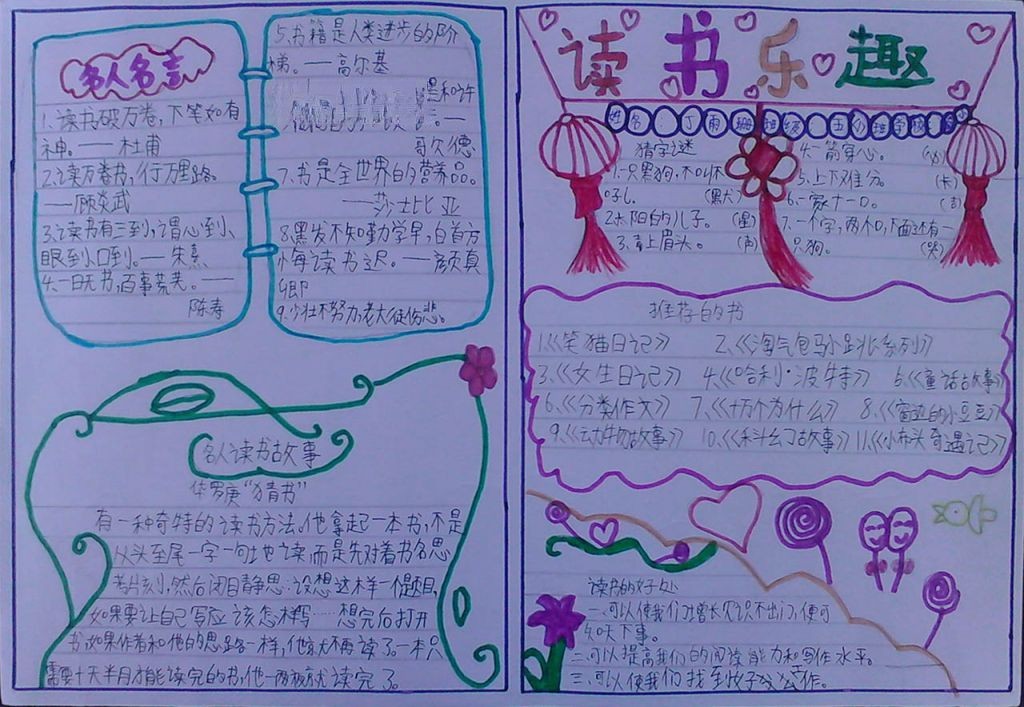 名人名言
1.读书破万卷，下笔如有
神。——杜甫
2.读万卷书，行万里路。
——顾炎武
3.读书有三到，谓心到、
眼到、口到。——朱熹
4.一日无书，百事荒芜。——
陈寿
5.书籍是人类进步的阶
梯。——高尔基
哥尔德
7.书是全世界的营养品。
——莎士比亚
8.黑发不知勤学早，白首方
悔读书迟。——颜真
卿
9.少壮不努力，老大徒伤悲。
名人读书故事
华罗庚“猜书”
有一种奇特的读书方法，他拿起一本书，不是
从头至尾一字一句地读，而是先对着书名思
考片刻，然后闭目静思：设想这样一个题目，
如果要让自己写应该怎样写……想完后打开
书，如果作者和他的思路一样，他就不再读了。一本只
需要十天半月才能读完的书，他一两夜就读完了。
读书乐趣
姓名 丁雨珊 班级
猜字谜
1.一只黑狗，不叫不
吼。（默）
2.太阳的儿子。（星）
3.青上眉头。（声）
4.一箭穿心。（必）
5.上下难分。（卡）
6.一家十一口。（吉）
7.一个字，两个口，下面还有一
只狗。（哭）
推荐的书
1.《笑猫日记》 2.《淘气包马小跳系列》
3.《女生日记》 4.《哈利·波特》 5.《童话故事》
6.《分类作文》 7.《十万个为什么》 8.《窗边的小豆豆》
9.《动物故事》 10.《科幻故事》 11.《小布头奇遇记》
读书的好处
一、可以使我们增长见识不出门，便可
知天下事。
二、可以提高我们的阅读能力和写作水平。
三、可以使我们找到好工作。